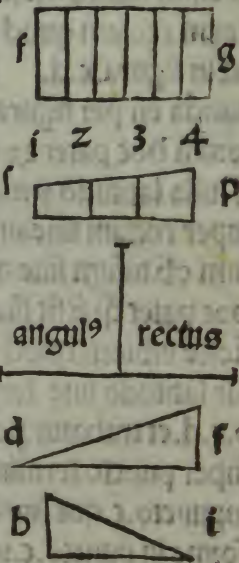 f g
i 2 3 · 4
f p
angulꝰ rectus
d f
b i